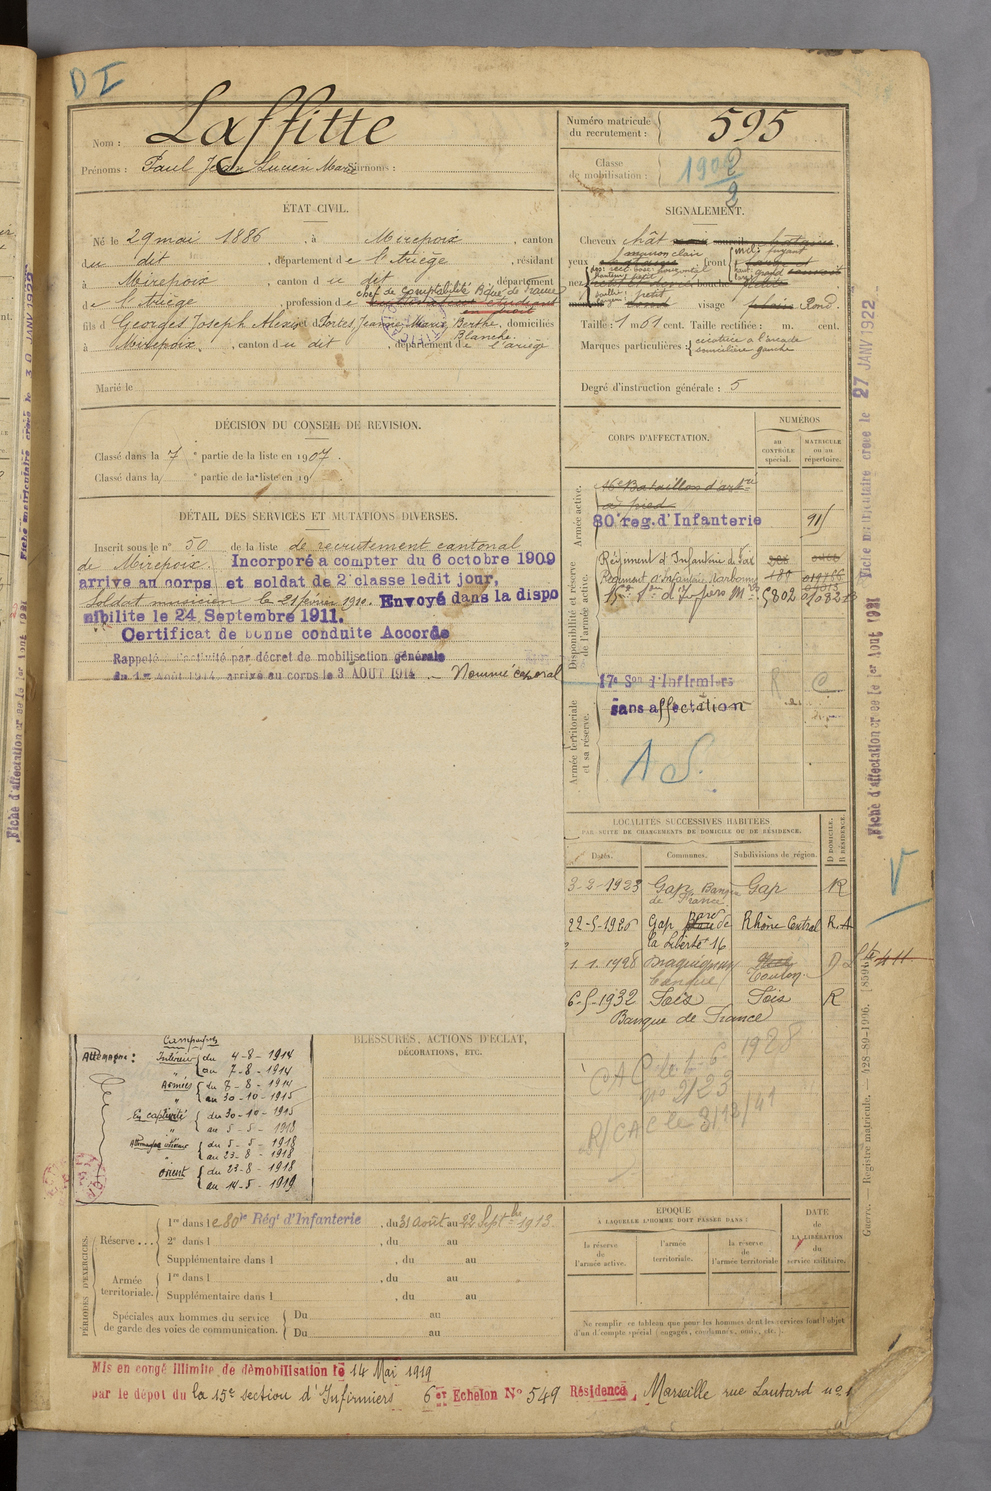 D I
Nom : Laffitte
Prénoms : Paul Jean Lucien Marie Surnoms :
Numéro matricule du recrutement : 595
Classe de mobilisation : 1902
2
ÉTAT CIVIL.
Né le 29 mai 1886, à Mirepoix, canton
du dit, département de l'Ariège, résidant
à Mirepoix, canton du dit, département
chef de comptabilité Bque de France
de l'Ariège, profession de étudiant
en droit
fils de Georges Joseph Alexis et de Portes Jeanne Marie Berthe, domiciliés
Blanche.
à Mirepoix, canton du dit, département de l'ariège
Marié le
SIGNALEMENT.
Cheveux chât sourcils châtains,
marron clair
yeux front
nez bouche
visage Rond.
Taille : 1 m 61 cent. Taille rectifiée : m. cent.
Marques particulières : cicatrice à l'arcade
sourcilière gauche
Degré d'instruction générale : 5
DÉCISION DU CONSEIL DE REVISION.
Classé dans la 7e partie de la liste en 1907.
Classé dans la partie de la liste en 19
DÉTAIL DES SERVICES ET MUTATIONS DIVERSES.
Inscrit sous le n° 50 de la liste de recrutement cantonal
de Mirepoix. Incorporé a compter du 6 octobre 1909
arrive au corps et soldat de 2e classe ledit jour,
Soldat musicien le 21 février 1910. Envoyé dans la dispo
nibilite le 24 Septembre 1911.
Certificat de bonne conduite Accorde
Rappelé à l'activité par décret de mobilisation générale
du 1er Août 1914, arrivé au corps le 3 AOUT 1914. – Nommé caporal
CORPS D'AFFECTATION.
NUMÉROS
au CONTRÔLE spécial.
MATRICULE ou au répertoire.
Armée active.
16e Bataillon d'artrie
à pied
80e reg. d'Infanterie 911
Disponibilité et réserve de l'armée active.
Régiment d'Infanterie de Foix
Régiment d'Infanterie Narbonne
15e Son d'Infirs Mres 5802
Armée territoriale et sa réserve.
17e Son d'Infirmiers R C
sans affectation
A S.
LOCALITÉS SUCCESSIVES HABITÉES
PAR SUITE DE CHANGEMENTS DE DOMICILE OU DE RÉSIDENCE.
Dates. Communes. Subdivisions de région. D DOMICILE. R RÉSIDENCE.
3-2-1923 Gap Banque de France Gap R
22-5-1926 Gap Bard de la Liberté 16 Rhône Central R.A
1.1.1928 Draguignan banque Toulon D
6-5-1932 Foix Foix R
Banque de France
Campagnes
Allemagne :
Intérieur du 4-8-1914
au 7-8-1914
Armées du 7-8-1914
" au 30-10-1915
En captivité du 30-10-1915
" au 5-5-1918
Allemagne intérieur du 5-5-1918
" au 23-8-1918
Orient du 23-8-1918
au 14-5-1919
BLESSURES, ACTIONS D'ÉCLAT,
DÉCORATIONS, ETC.
CAC le 6.6.1928
n° 2123
R/CAC le 3/12/41
PÉRIODES D'EXERCICES.
Réserve....
1re dans le 80e Régt d'Infanterie, du 31 août au 22 Septbre 1913.
2e dans l , du au
Supplémentaire dans l , du au
Armée territoriale.
1re dans l , du au
Supplémentaire dans l , du au
Spéciales aux hommes du service
de garde des voies de communication.
Du au
Du au
ÉPOQUE
À LAQUELLE L'HOMME DOIT PASSER DANS :
la réserve de l'armée active.
l'armée territoriale.
la réserve de l'armée territoriale
DATE de LA LIBÉRATION du service militaire.
Ne remplir ce tableau que pour les hommes dont les services font l'objet
d'un décompte spécial (engagés, condamnés, omis, etc.).
Mis en congé illimite de démobilisation le 14 Mai 1919
par le dépot du la 15e section d'Infirmiers 6e Echelon N° 549 Résidence, Marseille rue Lautard n° 1
Fiche matriculaire créée le 27 JANV 1922
Fiche d'affectation créée le 1er Aout 1931
V
Guerre. — Registre matricule. — 428-89-1906.